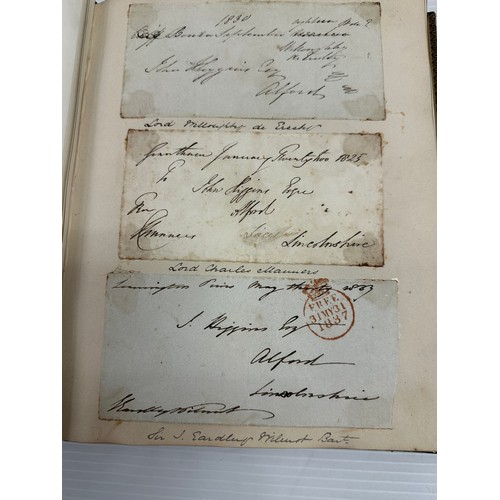 1830
September
John Higgins Esq
Alford
Lord Willoughby de Eresby
Grantham January Twenty two 1825
To
John Higgins Esqre
Alford
Lincolnshire
Lord Charles Manners
Leamington Priors May thirty 1837
FREE
31MY31
1837
J. Higgins Esq
Alford
Lincolnshire
Eardley Wilmot
Sir J. Eardley Wilmot Bart.